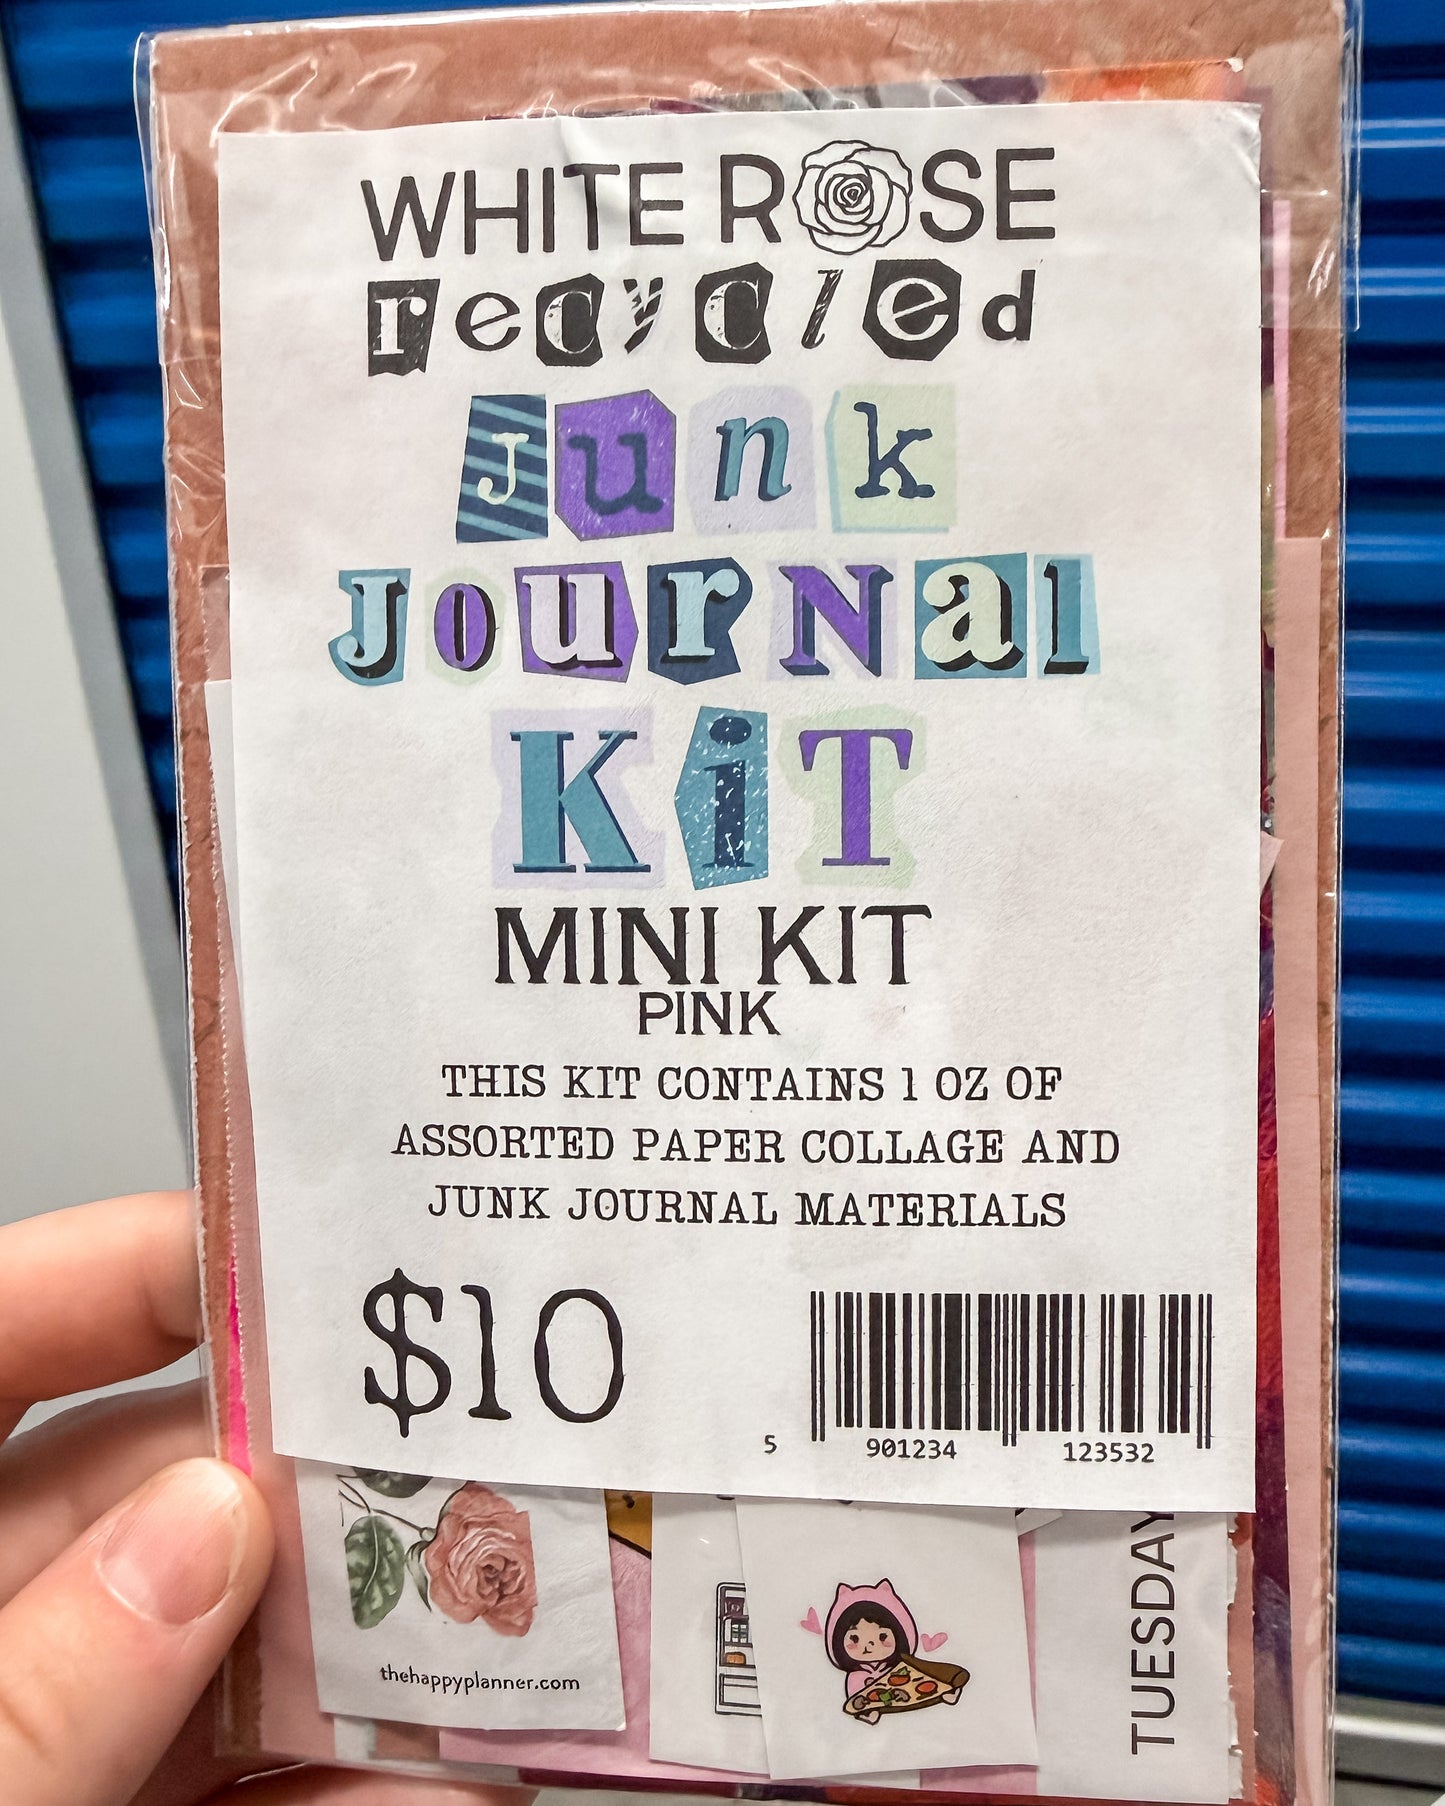 WHITE ROSE
recycled
Junk
JOurNal
KiT
MINI KIT
PINK
THIS KIT CONTAINS 1 OZ OF
ASSORTED PAPER COLLAGE AND
JUNK JOURNAL MATERIALS
$10
5 901234 123532
thehappyplanner.com
TUESDAY